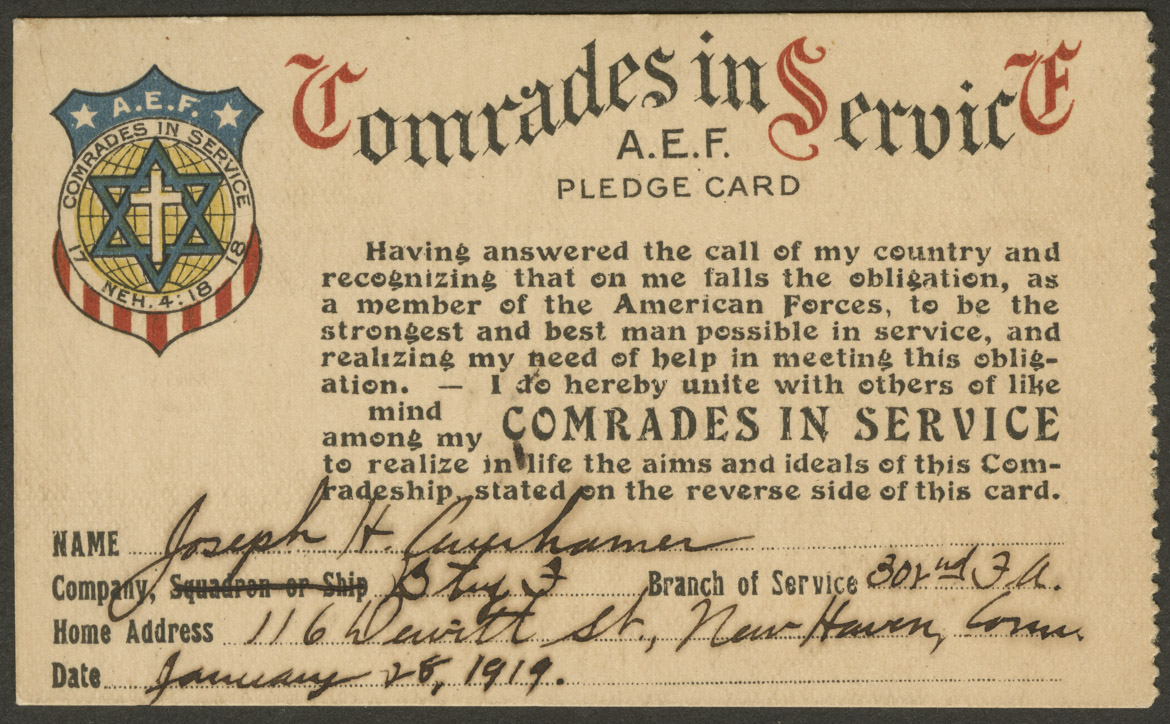 A.E.F.
COMRADES IN SERVICE
17 18
NEH. 4:18
Comrades in Service
A.E.F.
PLEDGE CARD
Having answered the call of my country and
recognizing that on me falls the obligation, as
a member of the American Forces, to be the
strongest and best man possible in service, and
realizing my need of help in meeting this oblig-
ation. — I do hereby unite with others of like
mind
among my COMRADES IN SERVICE
to realize in life the aims and ideals of this Com-
radeship, stated on the reverse side of this card.
NAME Joseph H.
Company, Squadron or Ship Bty F Branch of Service 302nd F.A.
Home Address 116 Dewitt St., New Haven, Conn.
Date January 28, 1919.